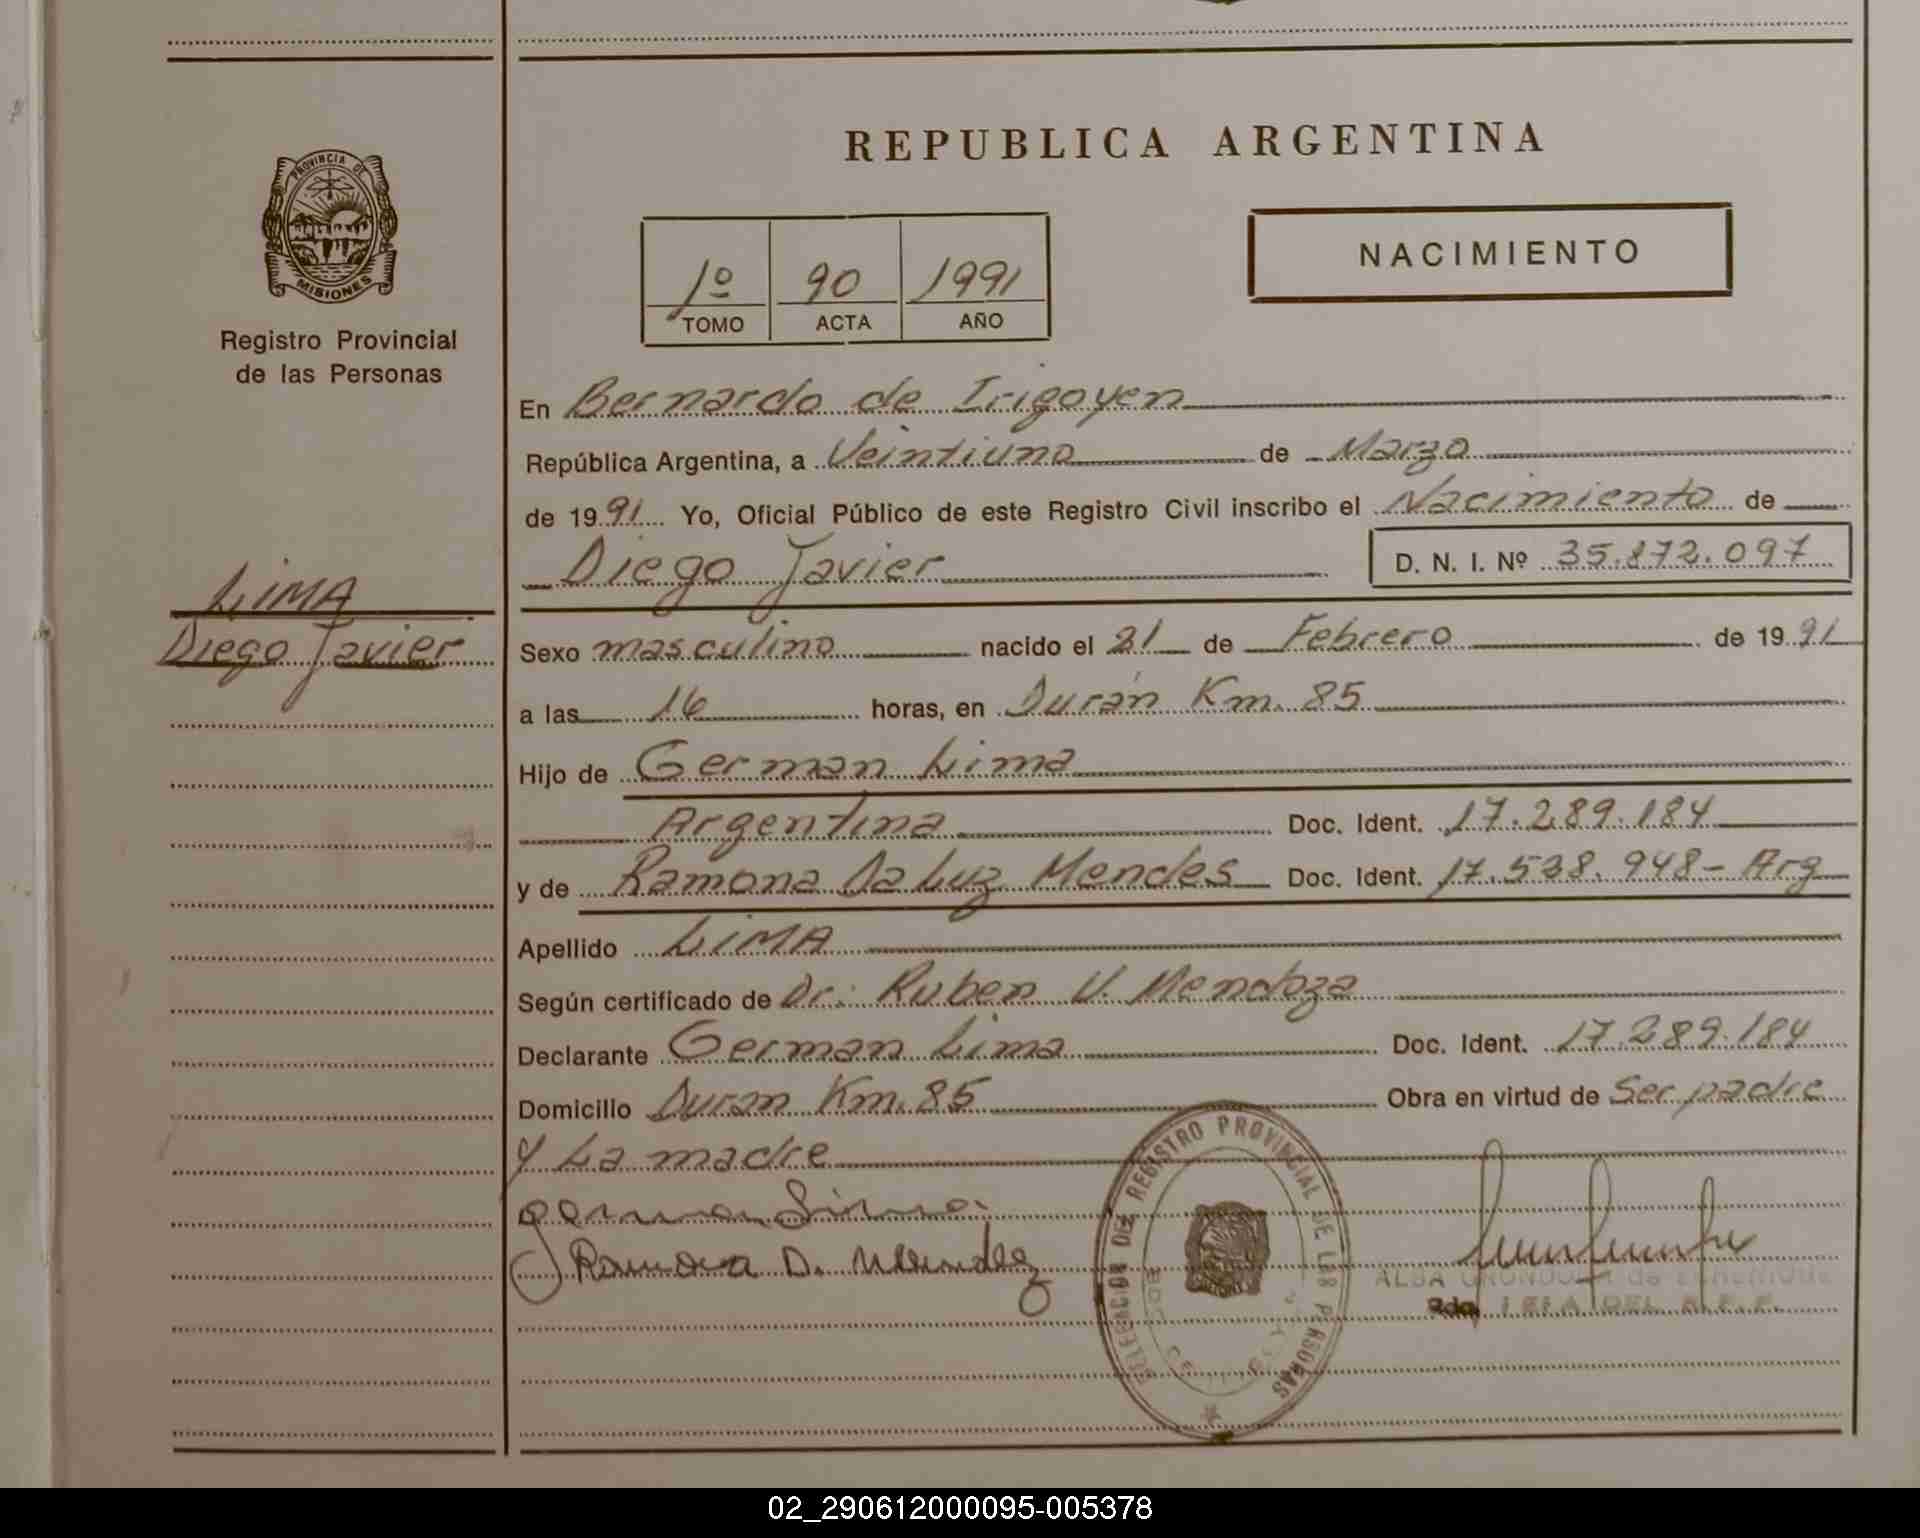 REPUBLICA ARGENTINA
PROVINCIA DE
MISIONES
Registro Provincial
de las Personas
NACIMIENTO
1º 90 1991
TOMO ACTA AÑO
En Bernardo de Irigoyen
República Argentina, a Veintiuno de Marzo
de 1991 Yo, Oficial Público de este Registro Civil inscribo el Nacimiento de
Diego Javier D. N. I. Nº 35.872.097
LIMA
Diego Javier
Sexo masculino nacido el 21 de Febrero de 1991
a las 16 horas, en Durán Km. 85
Hijo de German Lima
Argentina Doc. Ident. 17.289.184
y de Ramona Da Luz Mendes Doc. Ident. 17.538.948 - Arg
Apellido LIMA
Según certificado de Dr. Ruben V. Mendoza
Declarante German Lima Doc. Ident. 17.289.184
Domicilio Duran Km. 85 Obra en virtud de Ser padre
y La madre
german Lima
Ramona D. Mendez
REGISTRO PROVINCIAL DE LAS PERSONAS
ALBA
2da. JEFA DEL R.P.P.
02_290612000095-005378